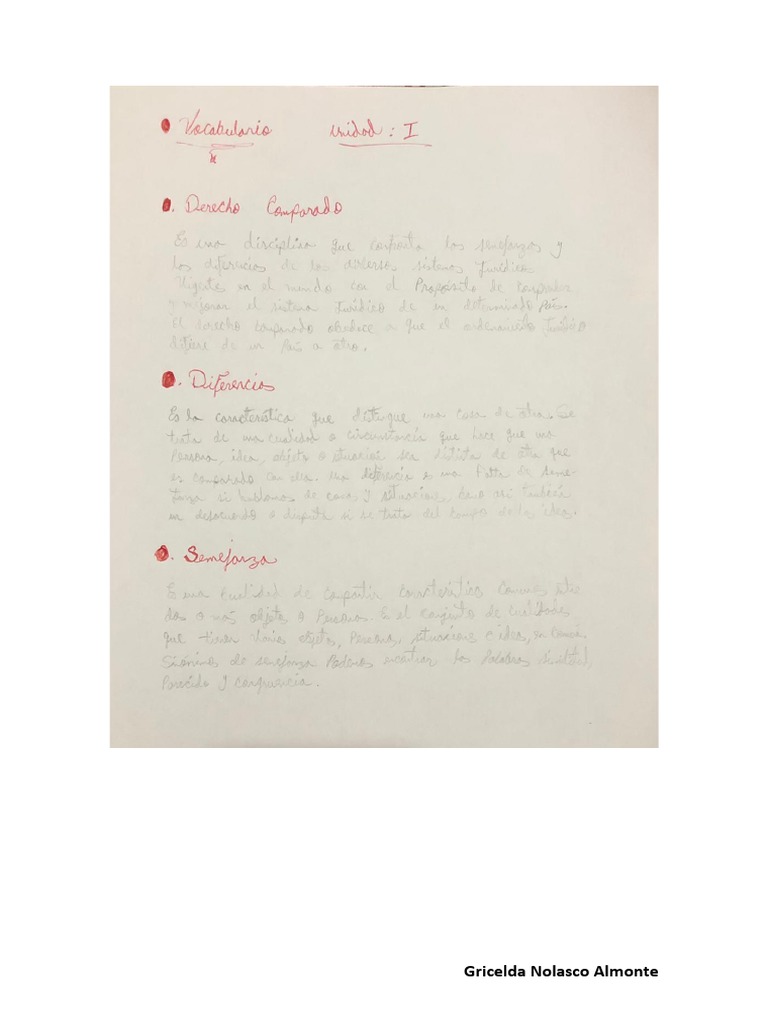 Vocabulario Unidad : I
Derecho Comparado
Es una disciplina que confronta las semejanzas y
las diferencias de los diversos sistemas Jurídicos
Vigente en el mundo con el Propósito de comprender
y mejorar el sistema Jurídico de un determinado País.
El derecho comparado obedece a que el ordenamiento Jurídico
difiere de un País a otro.
Diferencias
Es la característica que distingue una cosa de otra. Se
trata de una cualidad o circunstancia que hace que una
Persona, idea, objeto o situación ser distinta de otra que
es comparado con ella. Una diferencia es una falta de seme-
janza si hablamos de cosas y situaciones, pero así también
un desacuerdo o disputa si se trata del campo de las ideas.
Semejanza
Es una cualidad de compartir característica comunes entre
dos o más objeto o Persona. Es el conjunto de cualidades
que tienen varios objeto, Persona, situaciones e idea, en común.
Sinónimos de semejanza Podemos encontrar las Palabras similitud,
Parecido y congruencia.
Gricelda Nolasco Almonte